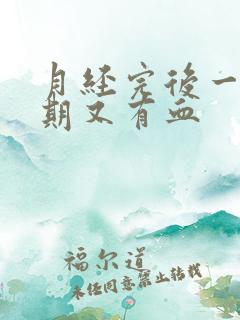 月经完后一
期又有血
福尔道
未经同意禁止转载